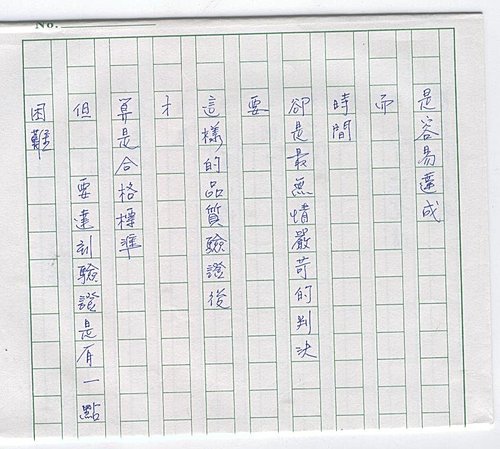 No.
是容易達成
而
時間
卻是最無情嚴苛的判決
要
這樣的品質驗證後
才
算是合格標準
但 要達到驗證是有一點
困難